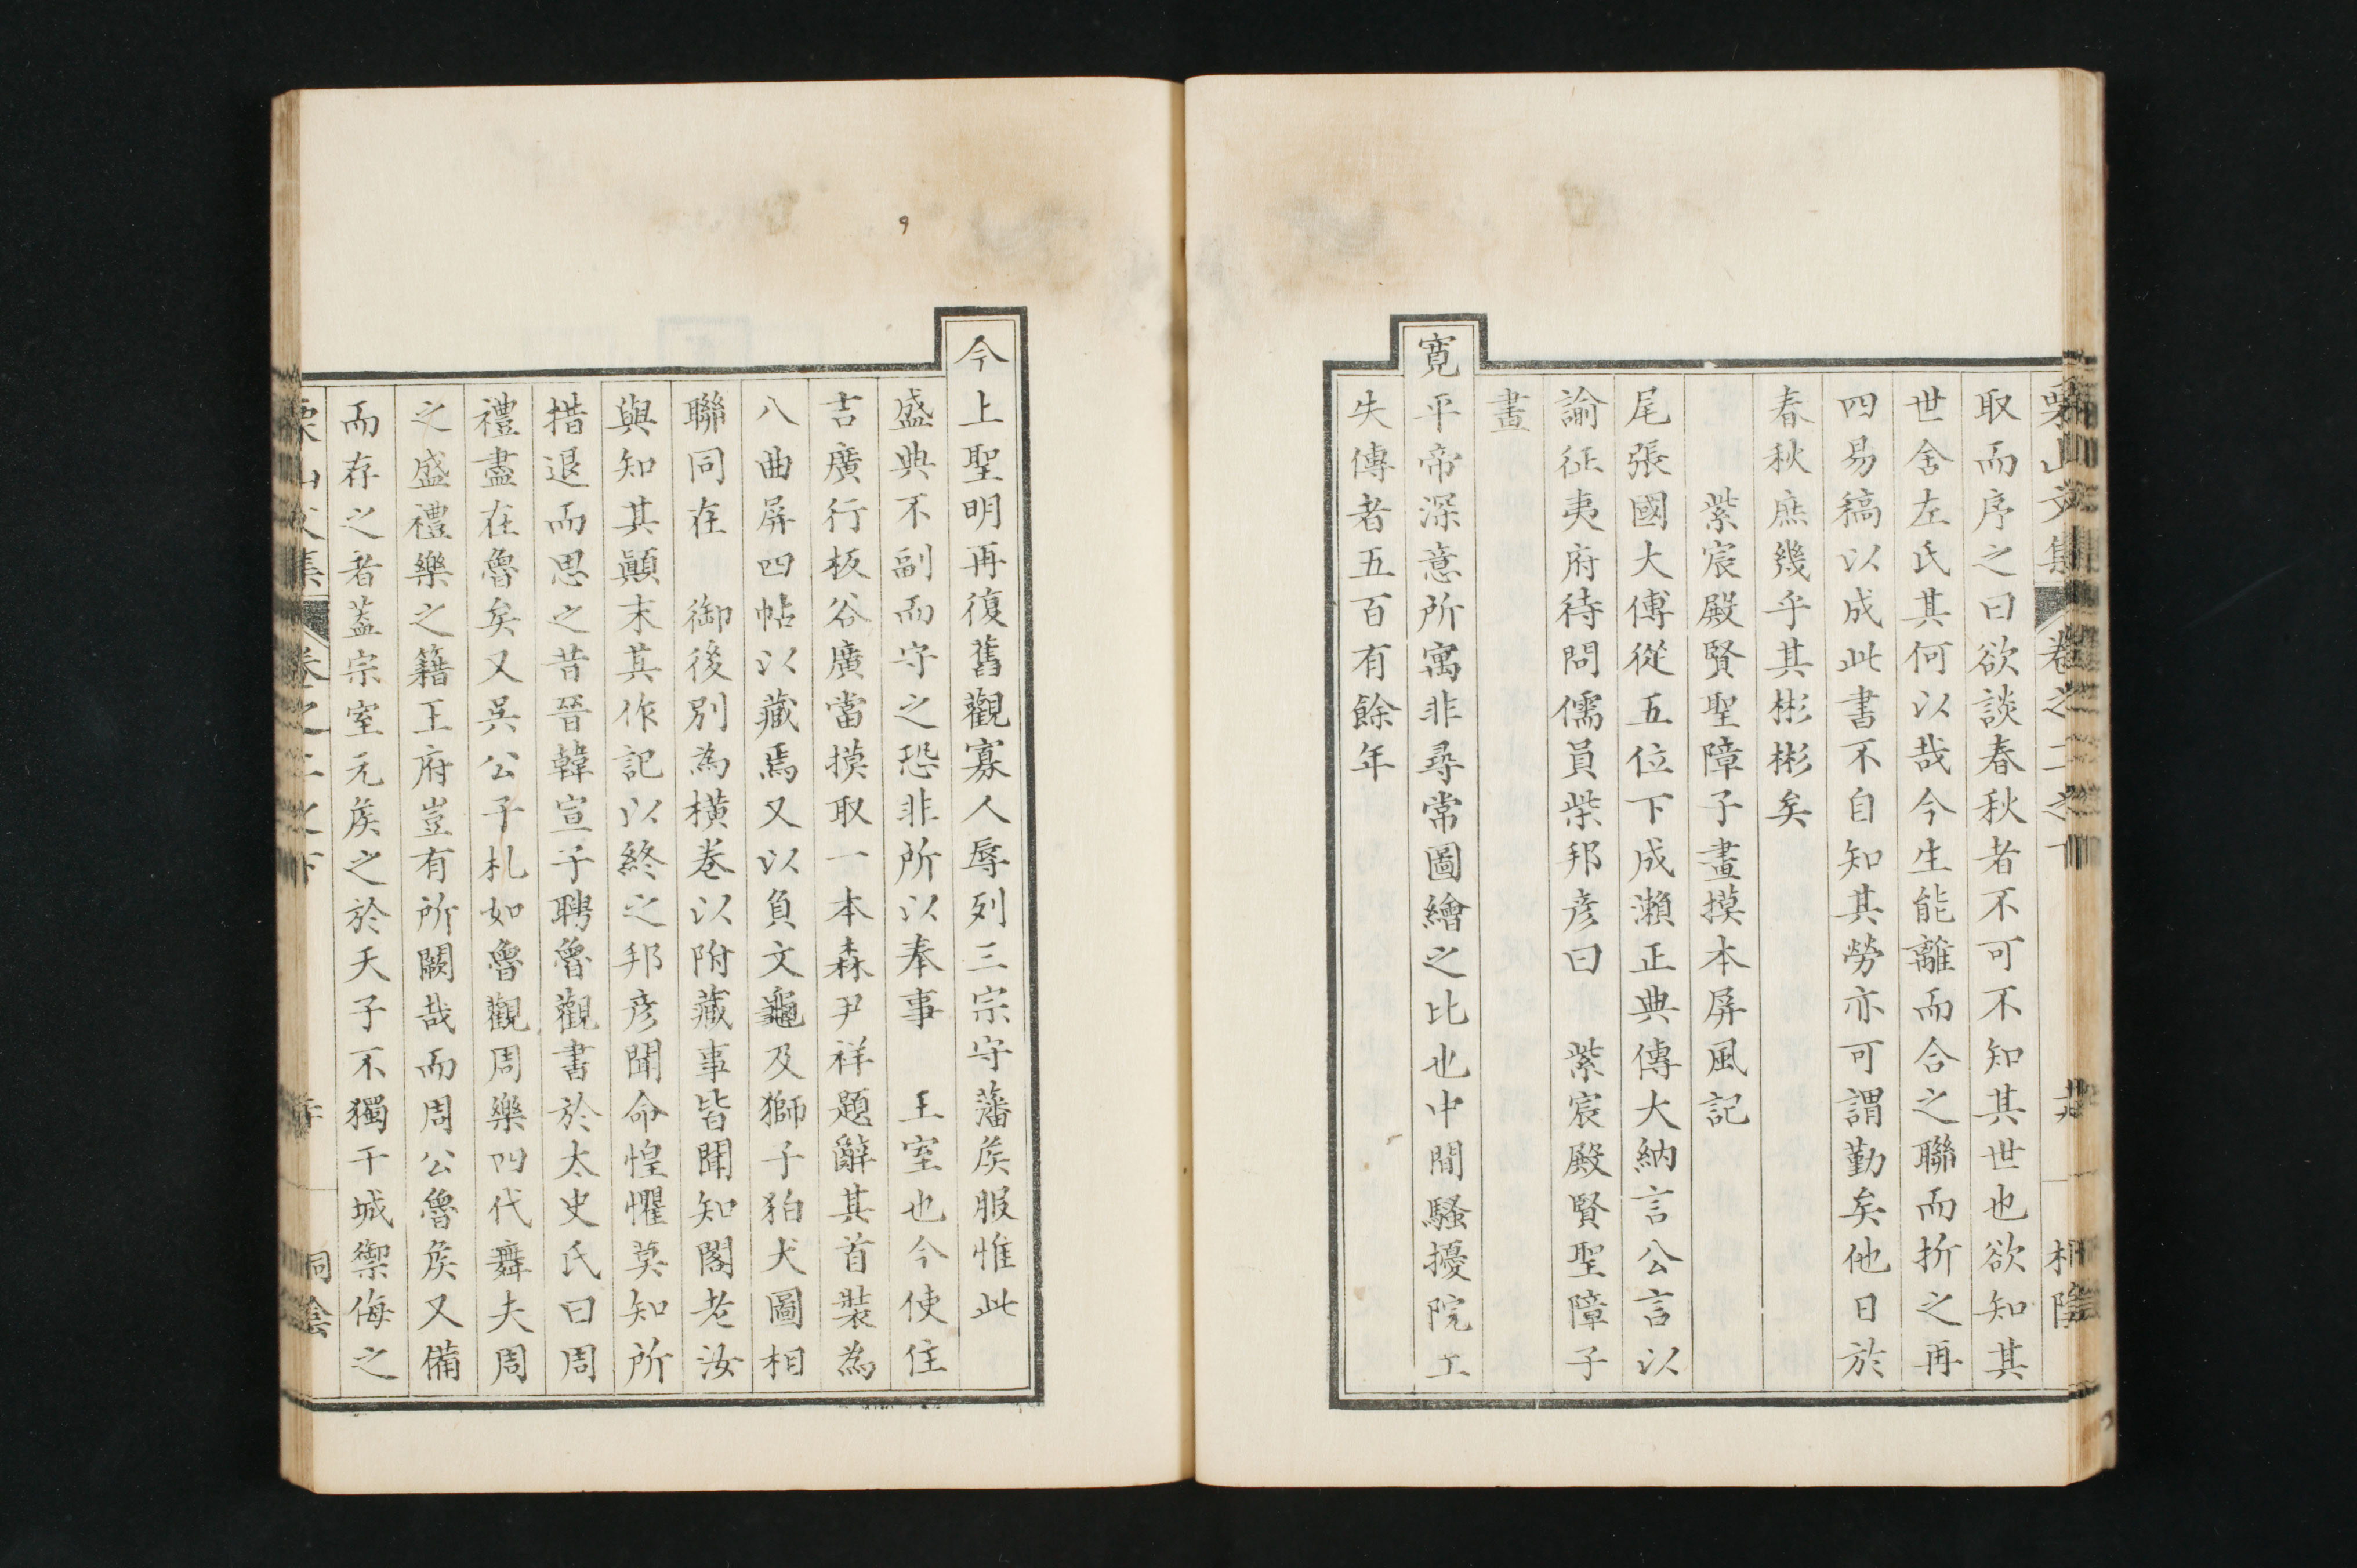 栗山文集 卷之二之下 桐陰
取而序之曰欲談春秋者不可不知其世也欲知其
世舍左氏其何以哉今生能離而合之聯而折之再
四易稿以成此書不自知其勞亦可謂勤矣他日於
春秋庶幾乎其彬彬矣
紫宸殿賢聖障子畫摸本屏風記
尾張國大傅從五位下成瀬正典傳大納言公言以
諭征夷府待問儒員柴邦彦曰 紫宸殿賢聖障子
畫
寛平帝深意所寓非尋常圖繪之比也中間騷擾院工
失傳者五百有餘年
今上聖明再復舊觀寡人辱列三宗守藩矦服惟此
盛典不副而守之恐非所以奉事 王室也今使住
吉廣行板谷廣當摸取一本森尹祥題辭其首裝為
八曲屏四帖以藏焉又以負文龜及獅子狛犬圖相
聯同在 御後別為橫卷以附藏事皆聞知閣老汝
與知其顚末其作記以終之邦彦聞命惶懼莫知所
措退而思之昔晉韓宣子聘魯觀書於太史氏曰周
禮盡在魯矣又吳公子札如魯觀周樂四代舞夫周
之盛禮樂之籍王府豈有所闕哉而周公魯矦又備
而存之者蓋宗室元矦之於天子不獨干城禦侮之
栗山文集 卷之二之下 桐陰
9